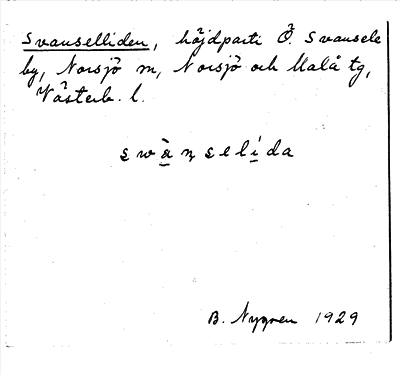 Svanselliden, höjdparti Ö. Svansele
by, Norsjö sn, Norsjö och Malå tg,
Västerb. l.
swànselida
B. Nygren 1929